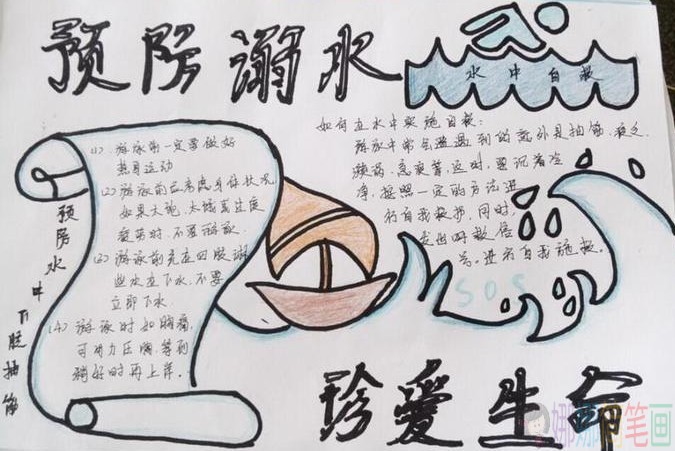 预防溺水
水中自救
如何在水中实施自救:
游泳中常会遇到的意外具抽筋、疲乏、
急浪等,这时,要沉着冷
净,按照一定的方法进
行自我救护,同时,
发出呼救信
号。进行自我施救。
SOS
(1)、游泳前一定要做好
热身运动
(2)游泳前应考虑身体状况
如果太饱、太饿或过度
疲劳时,不要游泳
(3)、游泳前先在四肢撩
些水在下水,不要
立即下水
(4)、游泳时如胸痛,
可用力压胸,等到
稍好时再上岸。
预防水中下肢抽筋
珍爱生命